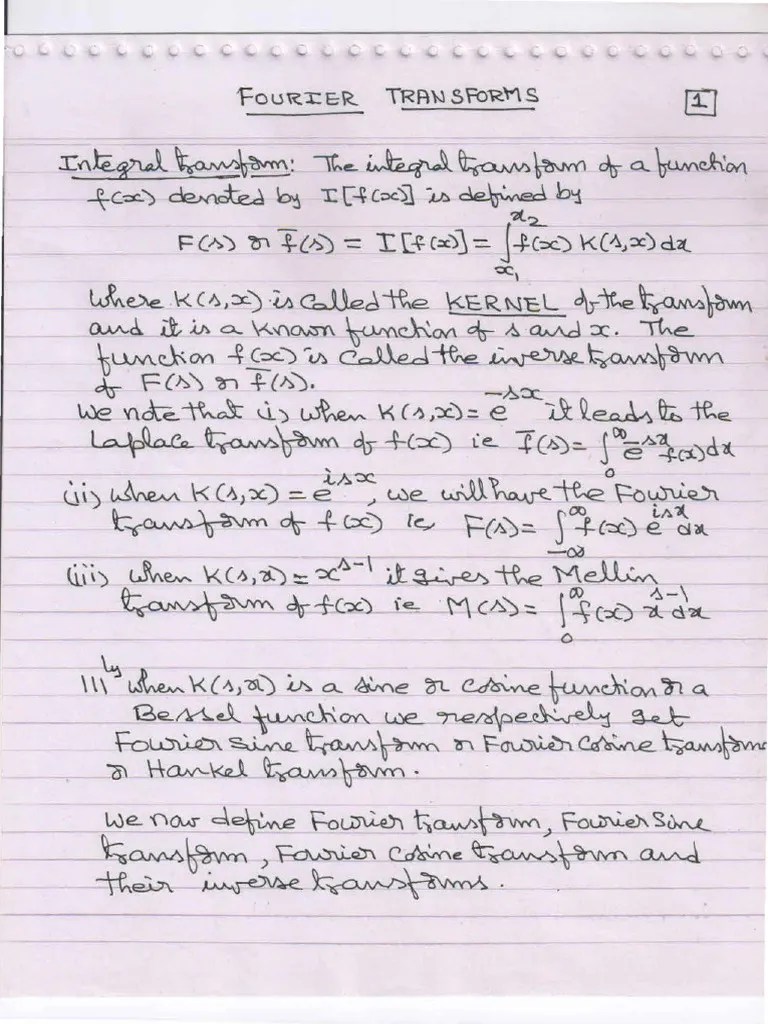 FOURIER TRANSFORMS 1
Integral transform: The integral transform of a function
f(x) denoted by I[f(x)] is defined by
F(s) or f̄(s) = I[f(x)] = ∫_{x₁}^{x₂} f(x) K(s,x) dx
where K(s,x) is called the KERNEL of the transform
and it is a known function of s and x. The
function f(x) is called the inverse transform
of F(s) or f̄(s).
We note that (i) when K(s,x) = e^{-sx} it leads to the
Laplace transform of f(x) ie f̄(s) = ∫_0^∞ e^{-sx} f(x) dx
(ii) when K(s,x) = e^{isx}, we will have the Fourier
transform of f(x) ie, F(s) = ∫_{-∞}^∞ f(x) e^{isx} dx
(iii) when K(s,x) = x^{s-1} it gives the Mellin
transform of f(x) ie M(s) = ∫_0^∞ f(x) x^{s-1} dx
lll^{ly} when K(s,x) is a sine or cosine function or a
Bessel function we respectively get
Fourier sine transform or Fourier cosine transform
or Hankel transform.
We now define Fourier transform, Fourier Sine
transform, Fourier cosine transform and
their inverse transforms.